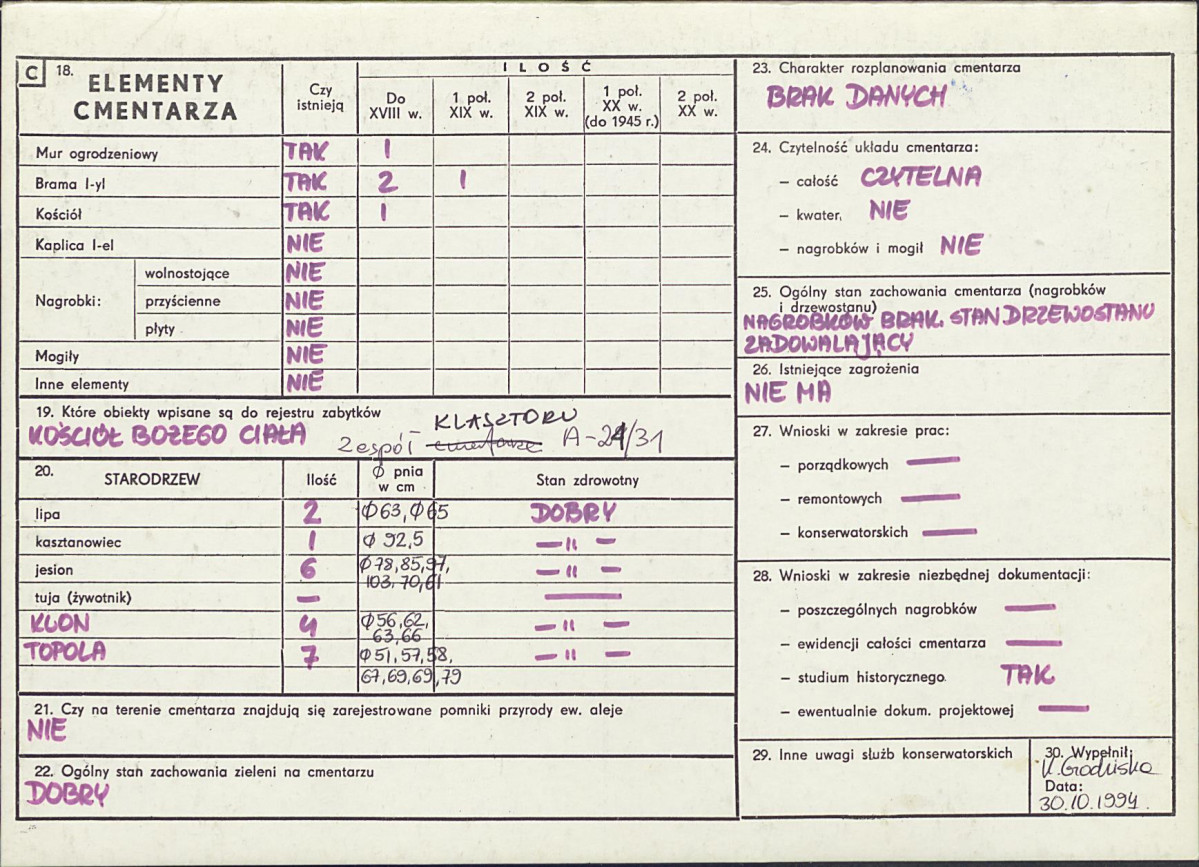 C 18.
ELEMENTY
CMENTARZA
Czy
istnieją
ILOŚĆ
Do
XVIII w.
1 poł.
XIX w.
2 poł.
XIX w.
1 poł.
XX w.
(do 1945 r.)
2 poł.
XX w.
Mur ogrodzeniowy TAK 1
Brama I-yl TAK 2 1
Kościół TAK 1
Kaplica I-el NIE
Nagrobki:
wolnostojące NIE
przyścienne NIE
płyty NIE
Mogiły NIE
Inne elementy NIE
19. Które obiekty wpisane są do rejestru zabytków
KOŚCIÓŁ BOŻEGO CIAŁA
KLASZTORU
Zespół cmentarza A-24/31
20.
STARODRZEW Ilość ϕ pnia
w cm
Stan zdrowotny
lipa 2 ϕ63, ϕ65 DOBRY
kasztanowiec 1 ϕ 92,5 —"—
jesion 6 ϕ78,85,97,
103,70,61 —"—
tuja (żywotnik) — —
KLON 4 ϕ56,62,
63,66 —"—
TOPOLA 7 ϕ51,57,58,
67,69,69,79 —"—
21. Czy na terenie cmentarza znajdują się zarejestrowane pomniki przyrody ew. aleje
NIE
22. Ogólny stan zachowania zieleni na cmentarzu
DOBRY
23. Charakter rozplanowania cmentarza
BRAK DANYCH
24. Czytelność układu cmentarza:
– całość CZYTELNA
– kwater, NIE
– nagrobków i mogił NIE
25. Ogólny stan zachowania cmentarza (nagrobków
i drzewostanu)
NAGROBKÓW BRAK. STAN DRZEWOSTANU
ZADOWALAJĄCY
26. Istniejące zagrożenia
NIE MA
27. Wnioski w zakresie prac:
– porządkowych —
– remontowych —
– konserwatorskich —
28. Wnioski w zakresie niezbędnej dokumentacji:
– poszczególnych nagrobków —
– ewidencji całości cmentarza —
– studium historycznego. TAK
– ewentualnie dokum. projektowej —
29. Inne uwagi służb konserwatorskich
30. Wypełnił:
K. Grodziska
Data:
30.10.1994.